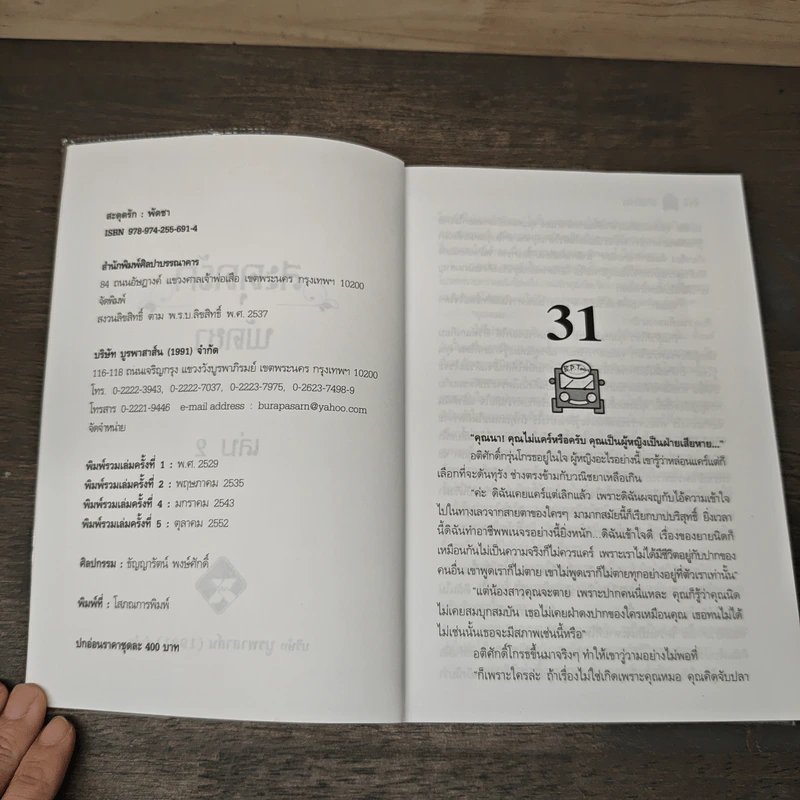 สะดุดรัก : พัดชา
ISBN 978-974-255-691-4
สำนักพิมพ์ศิลปาบรรณาคาร
84 ถนนอัษฎางค์ แขวงศาลเจ้าพ่อเสือ เขตพระนคร กรุงเทพฯ 10200
จัดพิมพ์
สงวนลิขสิทธิ์ ตาม พ.ร.บ.ลิขสิทธิ์ พ.ศ. 2537
บริษัท บูรพาสาส์น (1991) จำกัด
116-118 ถนนเจริญกรุง แขวงวังบูรพาภิรมย์ เขตพระนคร กรุงเทพฯ 10200
โทร. 0-2222-3943, 0-2222-7037, 0-2223-7975, 0-2623-7498-9
โทรสาร 0-2221-9446 e-mail address : burapasarn@yahoo.com
จัดจำหน่าย
พิมพ์รวมเล่มครั้งที่ 1 : พ.ศ. 2529
พิมพ์รวมเล่มครั้งที่ 2 : พฤษภาคม 2535
พิมพ์รวมเล่มครั้งที่ 4 : มกราคม 2543
พิมพ์รวมเล่มครั้งที่ 5 : ตุลาคม 2552
ศิลปกรรม : ธัญญารัตน์ พงษ์ศักดิ์
พิมพ์ที่ : โสภณการพิมพ์
ปกอ่อนราคาชุดละ 400 บาท
31
B.P. Tour
"คุณนา! คุณไม่แคร์หรือครับ คุณเป็นผู้หญิงเป็นฝ่ายเสียหาย..."
อติศักดิ์กรุ่นโกรธอยู่ในใจ ผู้หญิงอะไรอย่างนี้ เขารู้ว่าหล่อนแคร์แต่ก็
เลือกที่จะดันทุรัง ช่างตรงข้ามกับวณิชยาเหลือเกิน
"ค่ะ ดิฉันเคยแคร์แต่เลิกแล้ว เพราะดิฉันผจญกับไอ้ความเข้าใจ
ไปในทางเลวจากสายตาของใครๆ มามากสมัยนี้ก็เรียกบาปบริสุทธิ์ ยิ่งเวลา
นี้ดิฉันทำอาชีพพเนจรอย่างนี้ยิ่งหนัก...ดิฉันเข้าใจดี เรื่องของยายนิดก็
เหมือนกันไม่เป็นความจริงก็ไม่ควรแคร์ เพราะเราไม่ได้มีชีวิตอยู่กับปากของ
คนอื่น เขาพูดเราก็ไม่ตาย เขาไม่พูดเราก็ไม่ตายทุกอย่างอยู่ที่ตัวเราเท่านั้น"
"แต่น้องสาวคุณจะตาย เพราะปากคนนี่แหละ คุณก็รู้ว่าคุณนิด
ไม่เคยสมบุกสมบัน เธอไม่เคยฝ่าดงปากของใครเหมือนคุณ เธอทนไม่ได้
ไม่เช่นนั้นเธอจะมีสภาพเช่นนี้หรือ"
อติศักดิ์โกรธขึ้นมาจริงๆ ทำให้เขาวู่วามอย่างไม่พอที่
"ก็เพราะใครล่ะ ถ้าเรื่องไม่ใช่เกิดเพราะคุณหมอ คุณคิดจับปลา